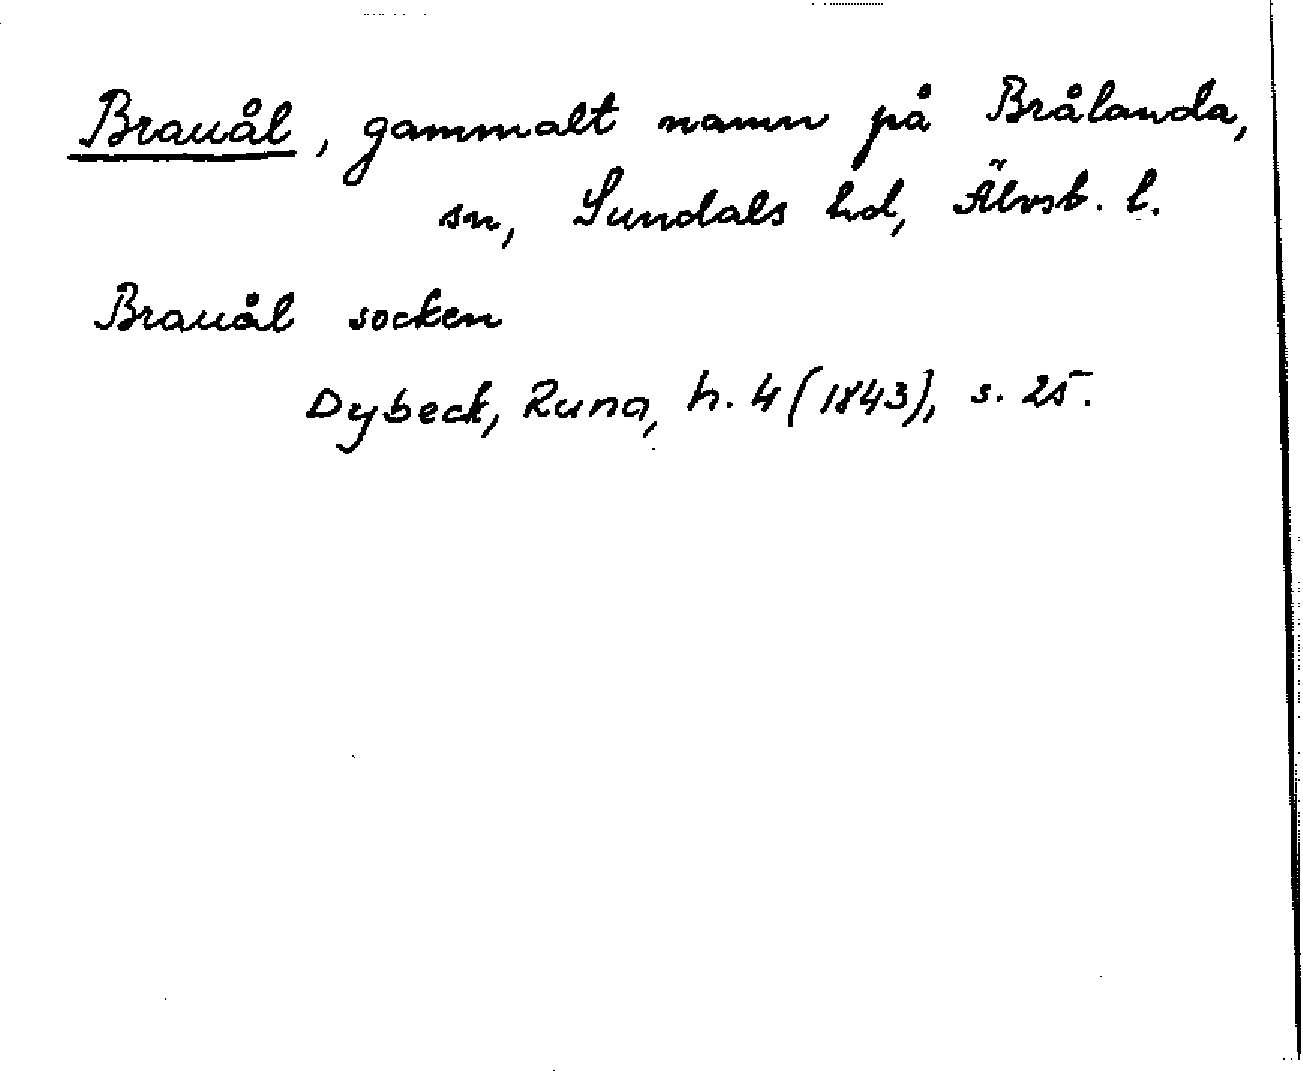 Brauål, gammalt namn på Brålanda,
sn, Sundals hd, Älvsb. l.
Brauål socken
Dybeck, Runa, h. 4 (1843), s. 25.